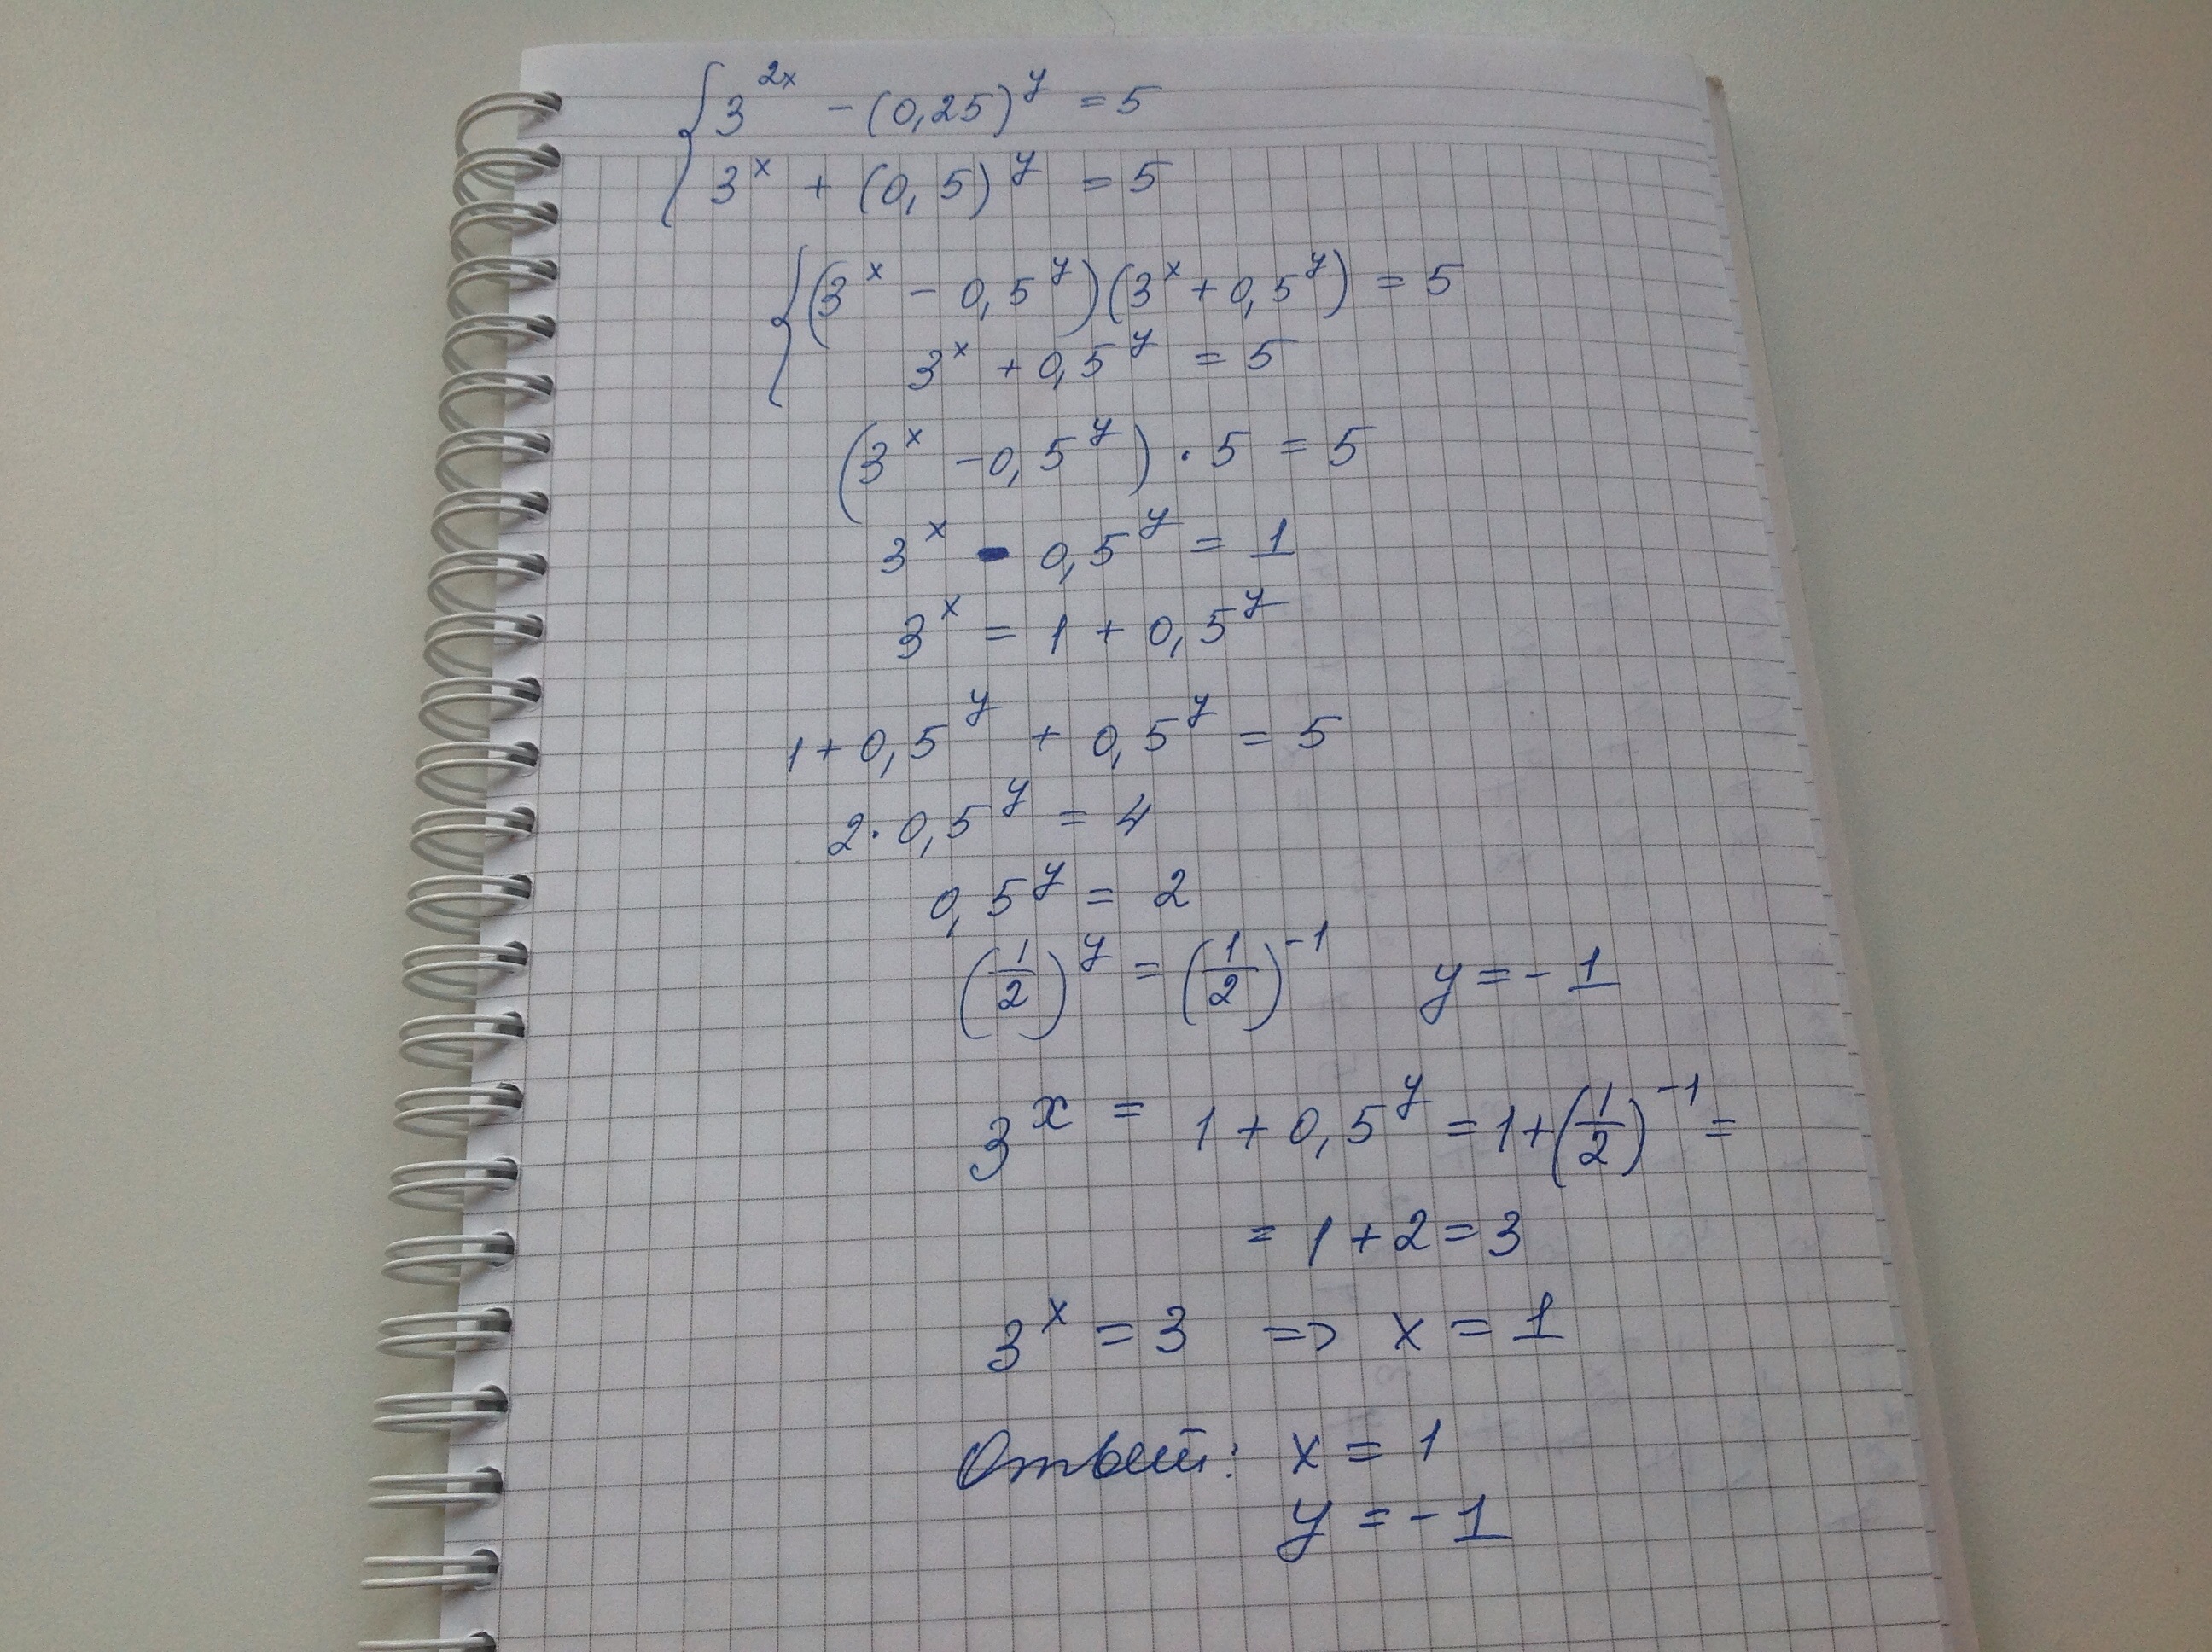 { 3^{2x} - (0,25)^y = 5
3^x + (0,5)^y = 5
{ (3^x - 0,5^y)(3^x + 0,5^y) = 5
3^x + 0,5^y = 5
(3^x - 0,5^y) · 5 = 5
3^x - 0,5^y = 1
3^x = 1 + 0,5^y
1 + 0,5^y + 0,5^y = 5
2 · 0,5^y = 4
0,5^y = 2
(1/2)^y = (1/2)^{-1} y = -1
3^x = 1 + 0,5^y = 1 + (1/2)^{-1} =
= 1 + 2 = 3
3^x = 3 => x = 1
Ответ: x = 1
y = -1